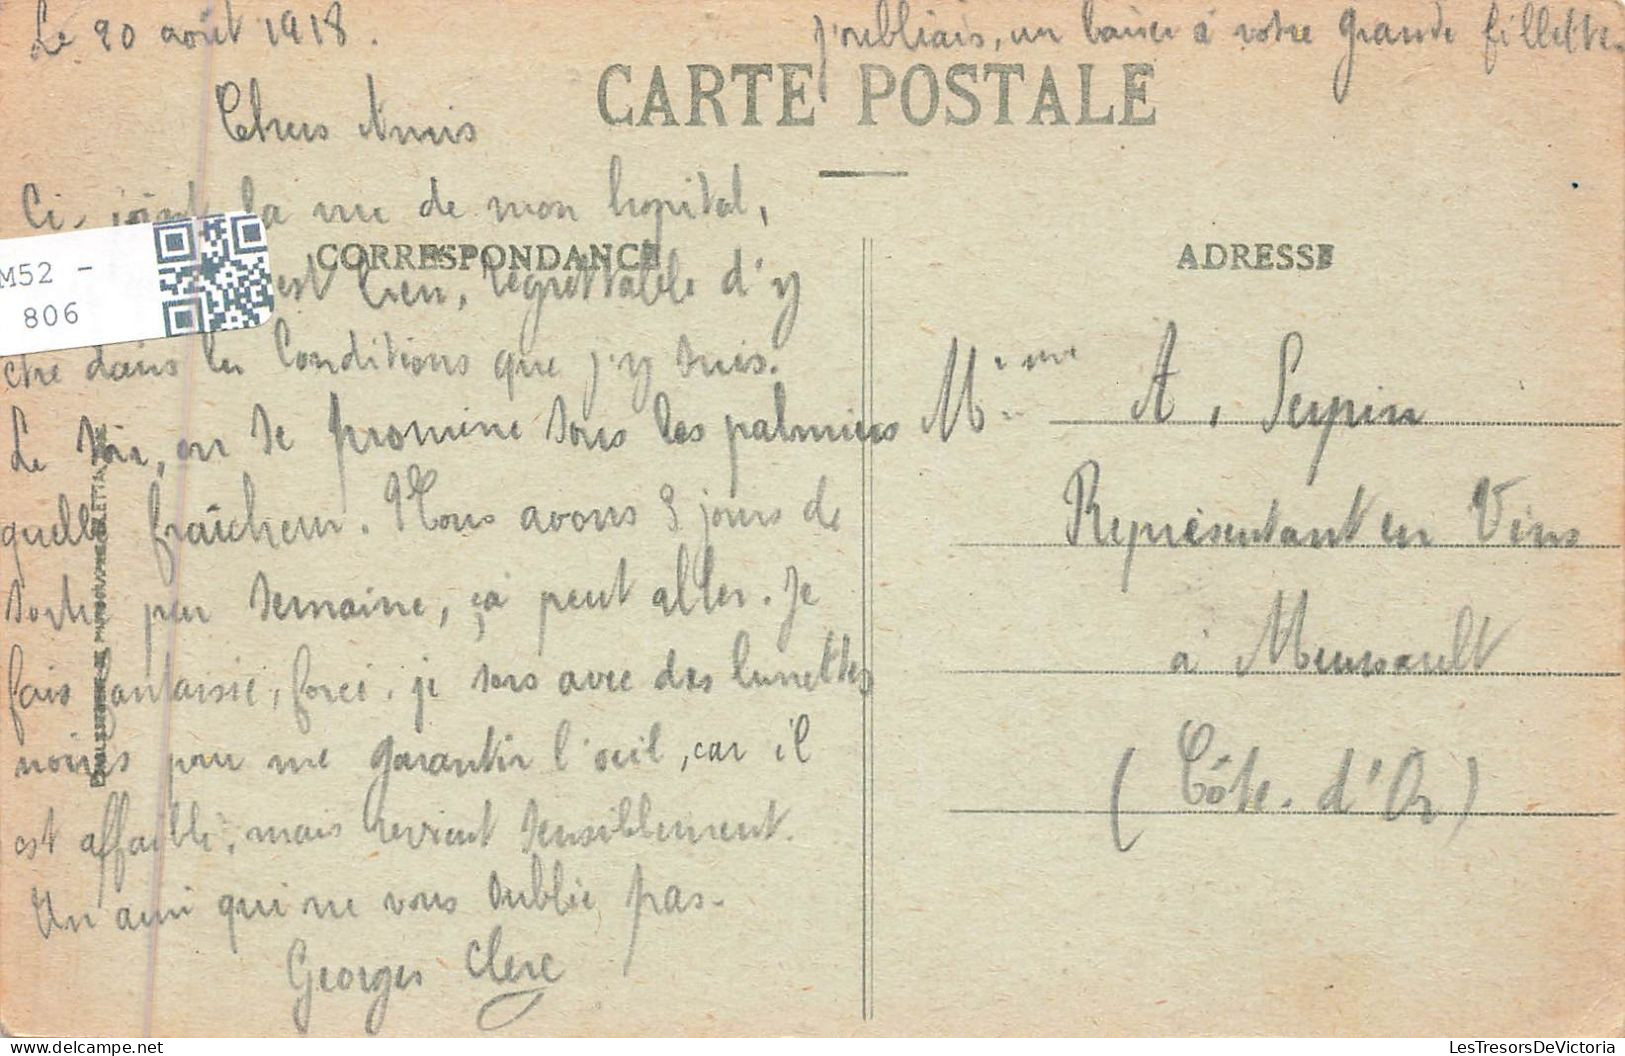 Le 20 août 1918.
j'oubliais, un baiser à votre grande fillette.
CARTE POSTALE
Chers Amis
Ci-joint la vue de mon hopital,
CORRESPONDANCE
ADRESSE
M52 -
806
est bien, regrettable d'y
etre dans les Conditions que j'y suis.
Le soir, on se promène sous les palmiers
quelle fraîcheur. Nous avons 3 jours de
sortie par semaine, ça peut aller. Je
fais fantaisie, forcé. je sors avec des lunettes
noires pour me garantir l'oeil, car il
est affaibli, mais revient sensiblement.
Un ami qui ne vous oublie pas.
Georges Clerc
A. Serpin
Représentant en Vins
à Meursault
(Côte. d'Or)
LesTresorsDeVictoria